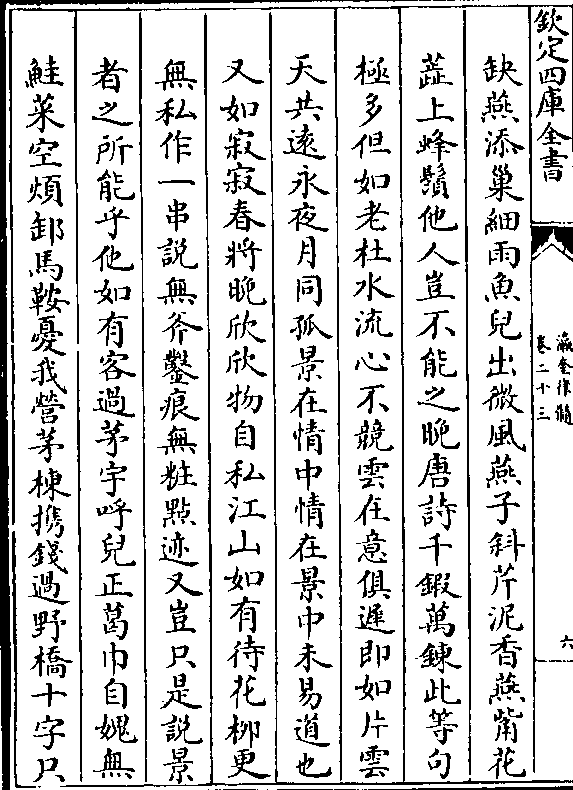 欽定四庫全書
瀛奎律髓
卷二十三
六
缺燕添巢細雨魚兒出微風燕子斜芹泥香燕觜花
蘂上蜂鬚他人豈不能之晚唐詩千鍜萬鍊此等句
極多但如老杜水流心不競雲在意俱遲即如片雲
天共遠永夜月同孤景在情中情在景中未易道也
又如寂寂春將晚欣欣物自私江山如有待花柳更
無私作一串說無斧鑿痕無粧點迹又豈只是說景
者之所能乎他如有客過茅宇呼兒正葛巾自媿無
鮭菜空煩卸馬鞍憂我營茅棟携錢過野橋十字只